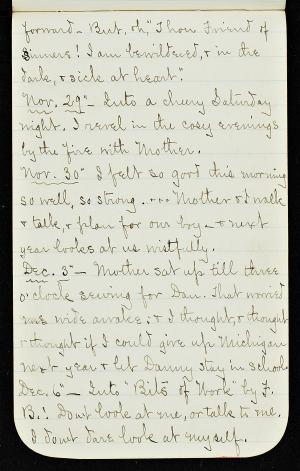 forward – But, oh, "Thou Friend of
sinners! I am bewildered, & in the
dark, & sick at heart".
"Nov. 29" – Into a cheery Saturday
night. I revel in the cosy evenings
by the fire with Mother.
Nov. 30" I felt so good this morning
so well, so strong. ... Mother & I walk
& talk, & plan for our boy – & next
year looks at us wistfully.
Dec. 3" – Mother sat up till three
o'clock sewing for Dan. That worried
me wide awake; & I thought, & thought
& thought if I could give up Michigan
next year & let Danny stay in school.
Dec. 6" – Into "Bits of Work" by F.
B.! Don't look at me, or talk to me.
I don't dare look at myself.